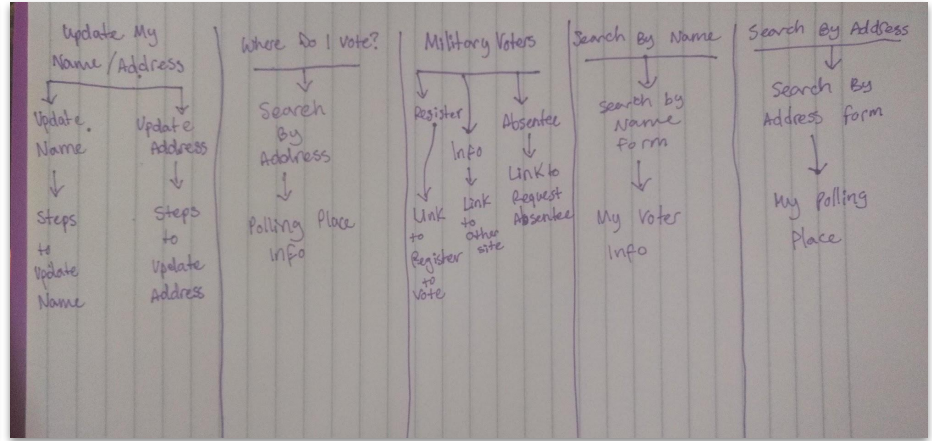 Update My
Name/Address
Update
Name
Update
Address
Steps
to
Update
Name
Steps
to
Update
Address
Where Do I Vote?
Search
By
Address
Polling Place
Info
Military Voters
Register
Info
Absentee
Link
to
Register
to
Vote
Link
to
other
site
Link to
Request
Absentee
Search By Name
Search by
Name
form
My Voter
Info
Search By Address
Search By
Address form
My Polling
Place